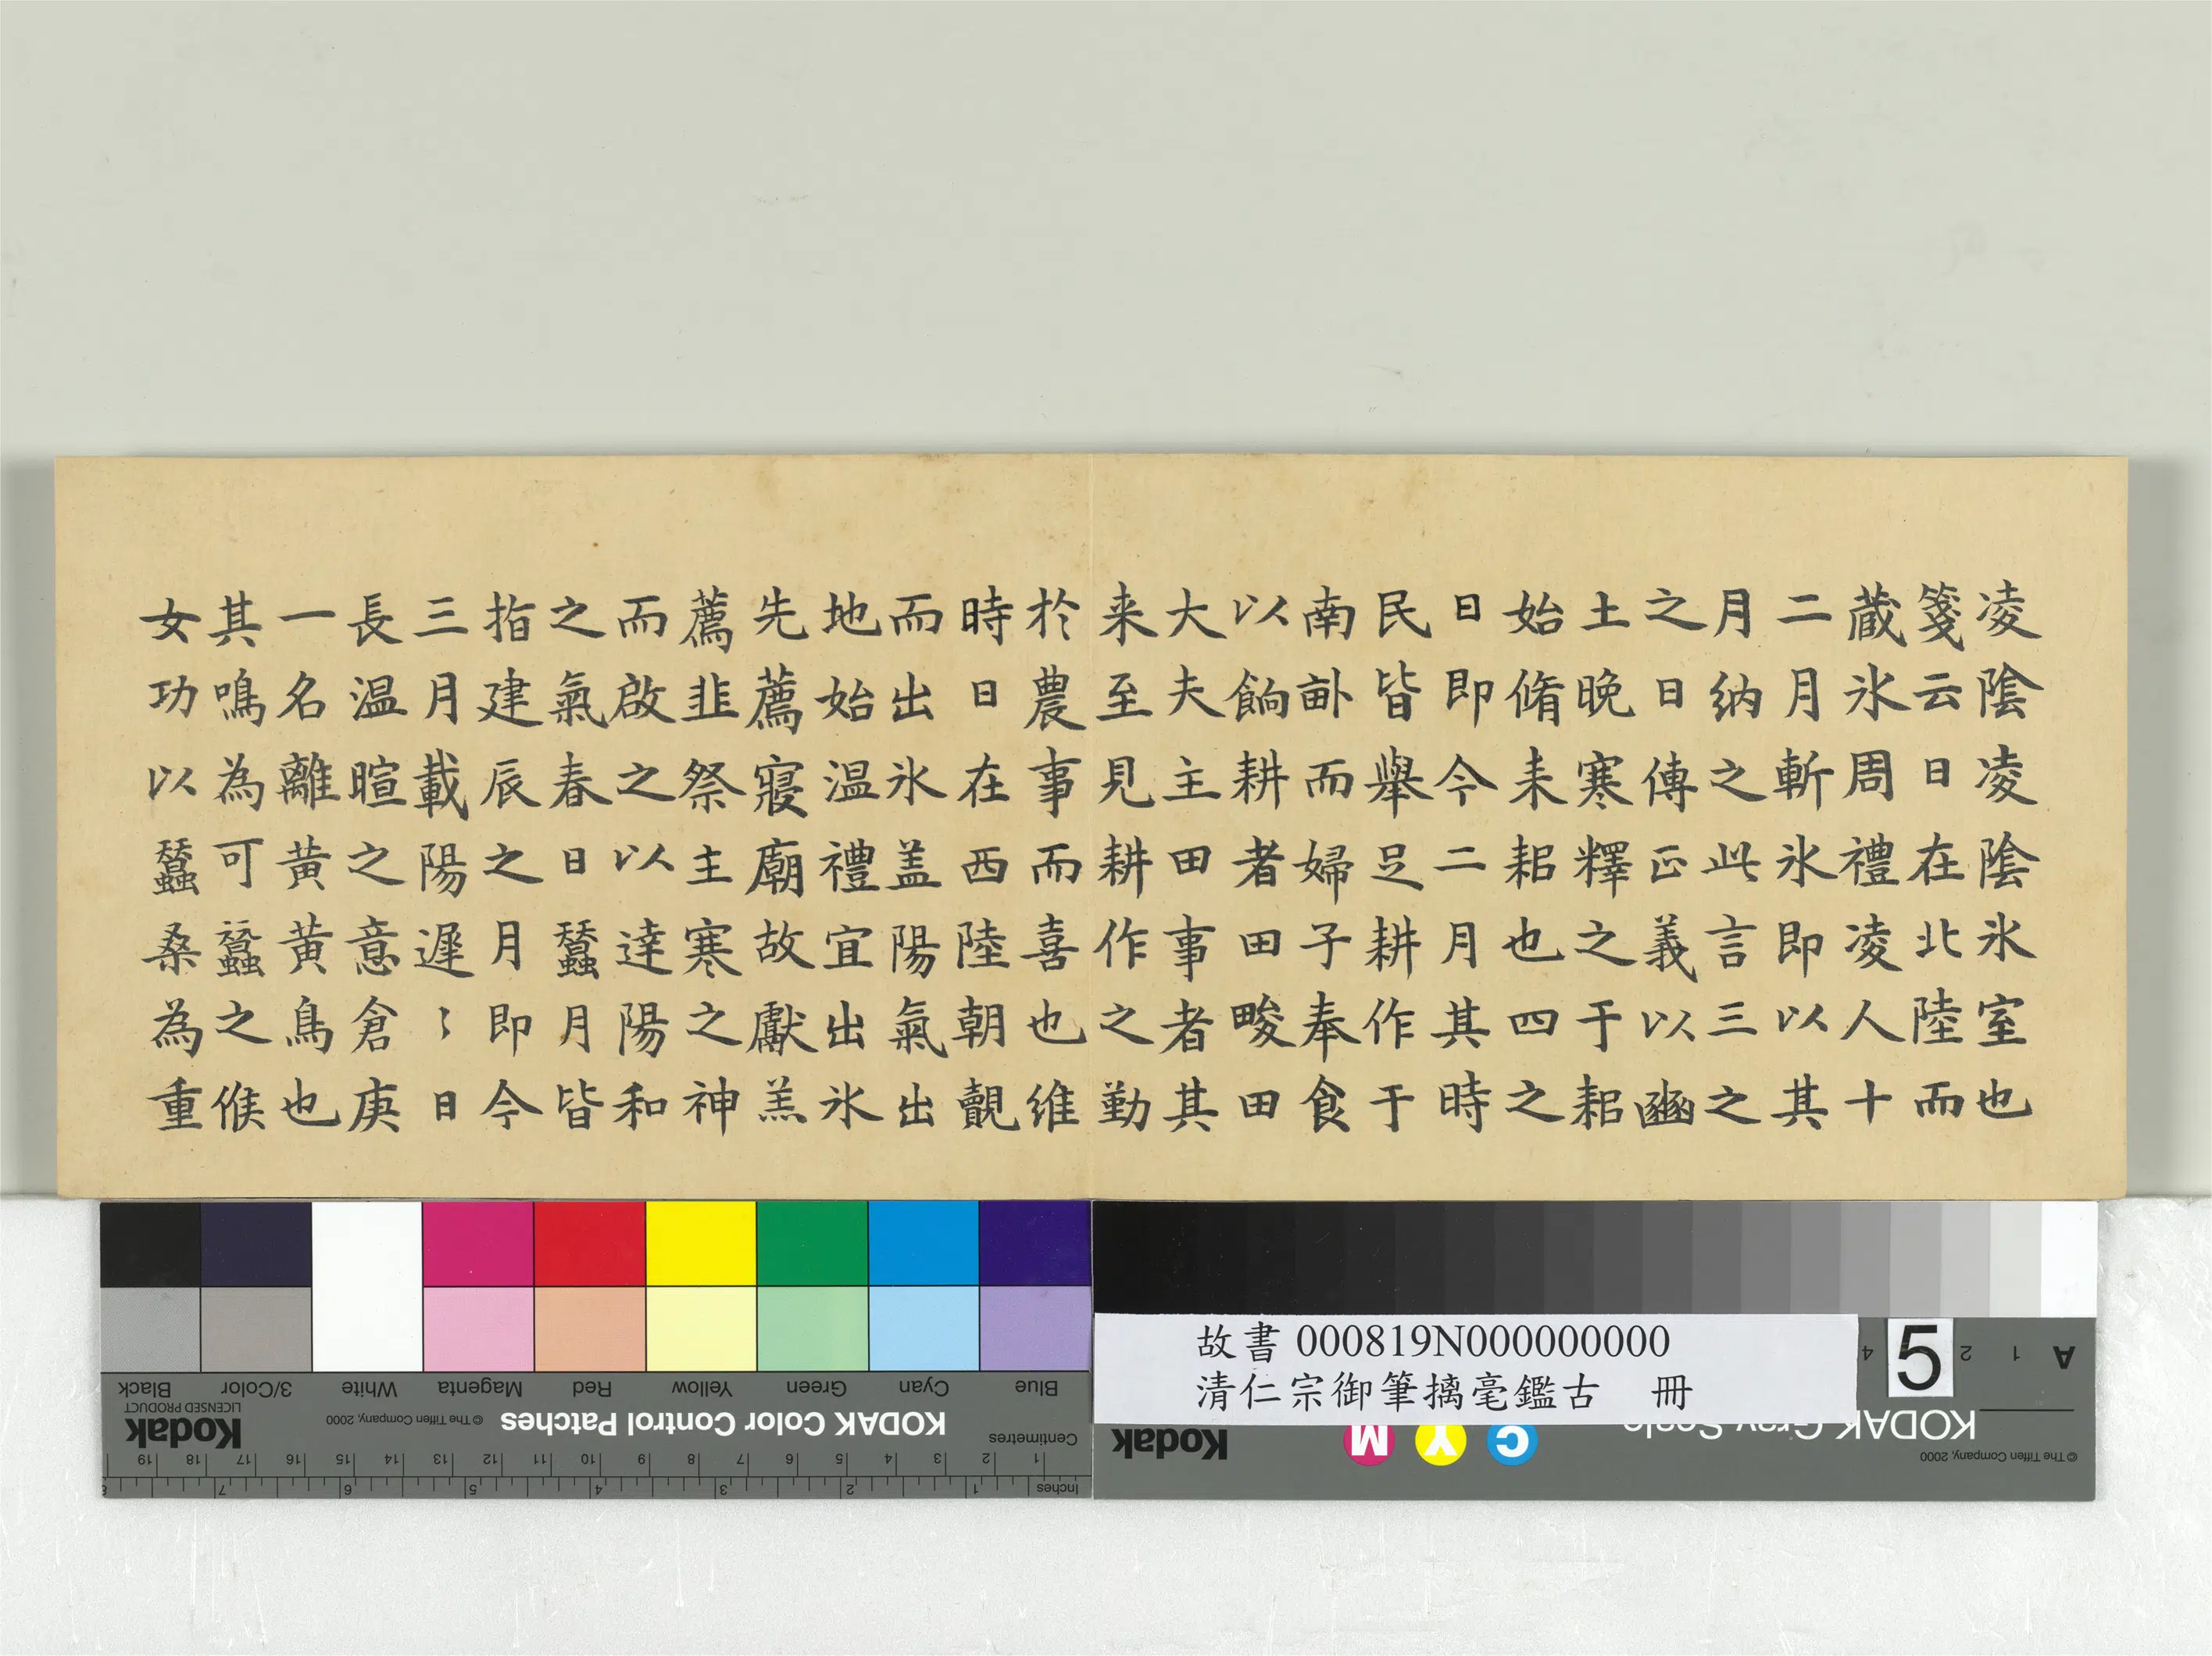 凌陰凌陰氷室也
箋云日在北陸而
蔵氷周禮凌人十
二月斬氷即以其
月納之此言三之
之日傳正義以豳
土晚寒釋之于耜
始脩耒耜也四之
日即今二月其時
民皆舉足耕作于
南畝而婦子奉食
以餉耕者田畯田
大夫主田事者其
来至見耕作之勤
於農事而喜也維
時日在西陸朝覿
而出氷盖陽氣出
地始温禮宜出氷
先薦寢廟故獻羔
薦韭祭主寒之神
而啟之以達陽和
之氣春日蠶月皆
指建辰之月即今
三月載陽遲〻日
長温暄之意倉庚
一名離黃黃鳥也
其鳴為可蠶之候
女功以蠶桑為重
Blue
Cyan
Green
Yellow
Red
Magenta
White
3/Color
Black
KODAK Color Control Patches
© The Tiffen Company, 2000
Kodak
LICENSED PRODUCT
Centimetres
1 2 3 4 5 6 7 8 9 10 11 12 13 14 15 16 17 18 19
Inches
1 2 3 4 5 6 7 8
故書 000819N000000000
清仁宗御筆摛毫鑑古 冊
5
A 1 2 4
KODAK Gray Scale
© The Tiffen Company, 2000
Kodak
C Y M